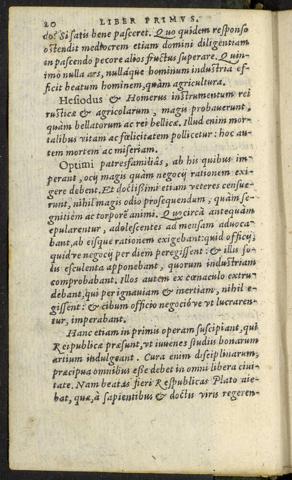 20 LIBER PRIMVS.
do: Si satis bene pasceret. Quo quidem responso
ostendit mediocrem etiam domini diligentiam
in pascendo pecore alios fructus superare. Quin-
imo nulla ars, nulláque hominum industria ef-
ficit beatum hominem, quàm agricultura.
Hesiodus & Homerus instrumentum rei
rusticæ & agricolarum, magis probauerunt,
quàm bellatorum ac rei bellicæ. Illud enim mor-
talibus vitam ac fœlicitatem pollicetur: hoc au-
tem mortem ac miseriam.
Optimi patresfamiliâs, ab his quibus im-
perant, ocij magis quàm negocij rationem exi-
gere debent. Et doctissimi etiam veteres censue-
runt, nihil magis odio prosequendum, quàm se-
gnitiem ac torporē animi. Quocircà antequàm
epularentur, adolescentes ad mensam aduoca-
bant, ab eisque rationem exigebant: quid officij,
quidve negocij per diem peregissent: & illis fo-
lis esculenta apponebant, quorum industriam
comprobabant. Illos autem ex cœnaculo extru-
debant, qui per ignauiam & inertiam, nihil e-
gissent: & cibum officio negocióve vt lucraren-
tur, imperabant.
Hanc etiam in primis operam suscipiant, qui
Reipublicæ præsunt, vt iuuenes studiis bonarum
artium indulgeant. Cura enim disciplinarum,
præcipua omnibus esse debet in omni libera ciui-
tate. Nam beatas fieri Respublicas Plato aie-
bat, quæ, à sapientibus & doctis viris regeren-